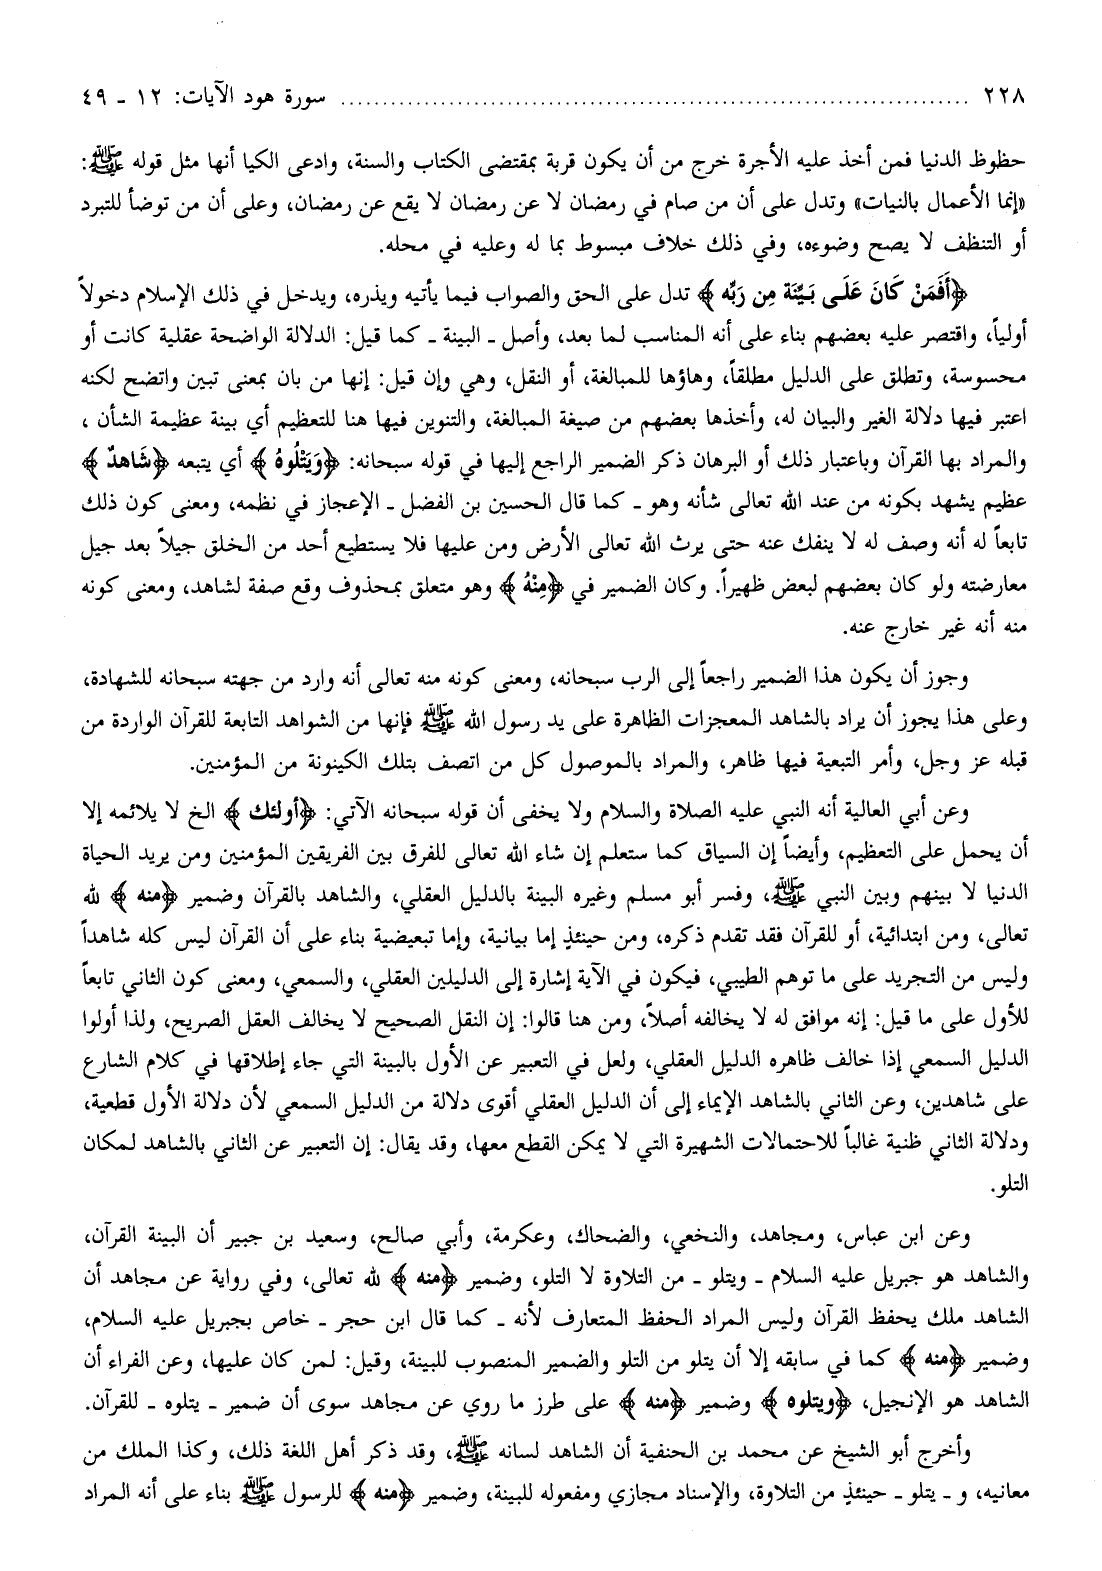 ٢٢٨ ............ سورة هود الآيات: ١٢ ـ ٤٩
حظوظ الدنيا فمن أخذ عليه الأجرة خرج من أن يكون قربة بمقتضى الكتاب والسنة، وادعى الكيا أنها مثل قوله ﷺ:
«إنما الأعمال بالنيات» وتدل على أن من صام في رمضان لا عن رمضان لا يقع عن رمضان، وعلى أن من توضأ للتبرد
أو التنظف لا يصح وضوءه، وفي ذلك خلاف مبسوط بما له وعليه في محله.
﴿أَفَمَنْ كَانَ عَلَى بَيِّنَة مِن رَبِّه﴾ تدل على الحق والصواب فيما يأتيه ويذره، ويدخل في ذلك الإسلام دخولاً
أولياً، واقتصر عليه بعضهم بناء على أنه المناسب لما بعد، وأصل ـ البينة ـ كما قيل: الدلالة الواضحة عقلية كانت أو
محسوسة، وتطلق على الدليل مطلقاً، وهاؤها للمبالغة، أو النقل، وهي وإن قيل: إنها من بان بمعنى تبين واتضح لكنه
اعتبر فيها دلالة الغير والبيان له، وأخذها بعضهم من صيغة المبالغة، والتنوين فيها هنا للتعظيم أي بينة عظيمة الشأن ،
والمراد بها القرآن وباعتبار ذلك أو البرهان ذكر الضمير الراجع إليها في قوله سبحانه: ﴿وَيَتْلُوهُ﴾ أي يتبعه ﴿شَاهدٌ﴾
عظيم يشهد بكونه من عند الله تعالى شأنه وهو ـ كما قال الحسين بن الفضل ـ الإعجاز في نظمه، ومعنى كون ذلك
تابعاً له أنه وصف له لا ينفك عنه حتى يرث الله تعالى الأرض ومن عليها فلا يستطيع أحد من الخلق جيلاً بعد جيل
معارضته ولو كان بعضهم لبعض ظهيراً. وكان الضمير في ﴿مِنْهُ﴾ وهو متعلق بمحذوف وقع صفة لشاهد، ومعنى كونه
منه أنه غير خارج عنه.
وجوز أن يكون هذا الضمير راجعاً إلى الرب سبحانه، ومعنى كونه منه تعالى أنه وارد من جهته سبحانه للشهادة،
وعلى هذا يجوز أن يراد بالشاهد المعجزات الظاهرة على يد رسول الله ﷺ فإنها من الشواهد التابعة للقرآن الواردة من
قبله عز وجل، وأمر التبعية فيها ظاهر، والمراد بالموصول كل من اتصف بتلك الكينونة من المؤمنين.
وعن أبي العالية أنه النبي عليه الصلاة والسلام ولا يخفى أن قوله سبحانه الآتي: ﴿أولئك﴾ الخ لا يلائمه إلا
أن يحمل على التعظيم، وأيضاً إن السياق كما ستعلم إن شاء الله تعالى للفرق بين الفريقين المؤمنين ومن يريد الحياة
الدنيا لا بينهم وبين النبي ﷺ، وفسر أبو مسلم وغيره البينة بالدليل العقلي، والشاهد بالقرآن وضمير ﴿منه﴾ لله
تعالى، ومن ابتدائية، أو للقرآن فقد تقدم ذكره، ومن حينئذٍ إما بيانية، وإما تبعيضية بناء على أن القرآن ليس كله شاهداً
وليس من التجريد على ما توهم الطيبي، فيكون في الآية إشارة إلى الدليلين العقلي، والسمعي، ومعنى كون الثاني تابعاً
للأول على ما قيل: إنه موافق له لا يخالفه أصلاً، ومن هنا قالوا: إن النقل الصحيح لا يخالف العقل الصريح، ولذا أولوا
الدليل السمعي إذا خالف ظاهره الدليل العقلي، ولعل في التعبير عن الأول بالبينة التي جاء إطلاقها في كلام الشارع
على شاهدين، وعن الثاني بالشاهد الإيماء إلى أن الدليل العقلي أقوى دلالة من الدليل السمعي لأن دلالة الأول قطعية،
ودلالة الثاني ظنية غالباً للاحتمالات الشهيرة التي لا يمكن القطع معها، وقد يقال: إن التعبير عن الثاني بالشاهد لمكان
التلو.
وعن ابن عباس، ومجاهد، والنخعي، والضحاك، وعكرمة، وأبي صالح، وسعيد بن جبير أن البينة القرآن،
والشاهد هو جبريل عليه السلام ـ ويتلو ـ من التلاوة لا التلو، وضمير ﴿منه﴾ لله تعالى، وفي رواية عن مجاهد أن
الشاهد ملك يحفظ القرآن وليس المراد الحفظ المتعارف لأنه ـ كما قال ابن حجر ـ خاص بجبريل عليه السلام،
وضمير ﴿منه﴾ كما في سابقه إلا أن يتلو من التلو والضمير المنصوب للبينة، وقيل: لمن كان عليها، وعن الفراء أن
الشاهد هو الإنجيل، ﴿ويتلوه﴾ وضمير ﴿منه﴾ على طرز ما روي عن مجاهد سوى أن ضمير ـ يتلوه ـ للقرآن.
وأخرج أبو الشيخ عن محمد بن الحنفية أن الشاهد لسانه ﷺ، وقد ذكر أهل اللغة ذلك، وكذا الملك من
معانيه، و ـ يتلو ـ حينئذٍ من التلاوة، والإسناد مجازي ومفعوله للبينة، وضمير ﴿منه﴾ للرسول ﷺ بناء على أنه المراد